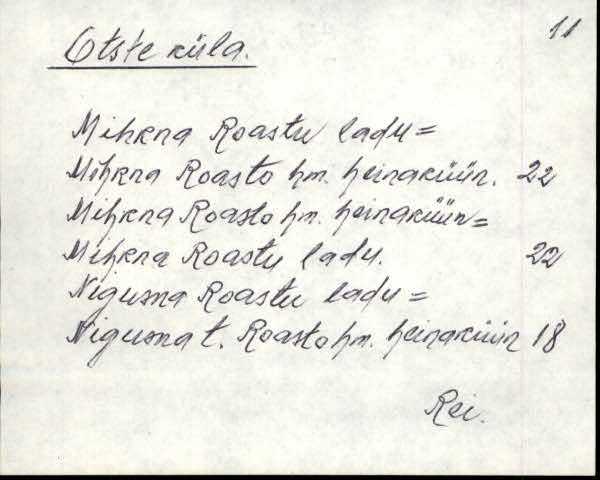 11
Otste küla.
Mihkna Roastu ladu =
Mihkna Roasto hm. heinaküün. 22
Mihkna Roasto hm. heinaküün =
Mihkna Roastu ladu. 22
Nigusna Roastu ladu =
Nigusna t. Roasto hm. heinaküün 18
Rei.